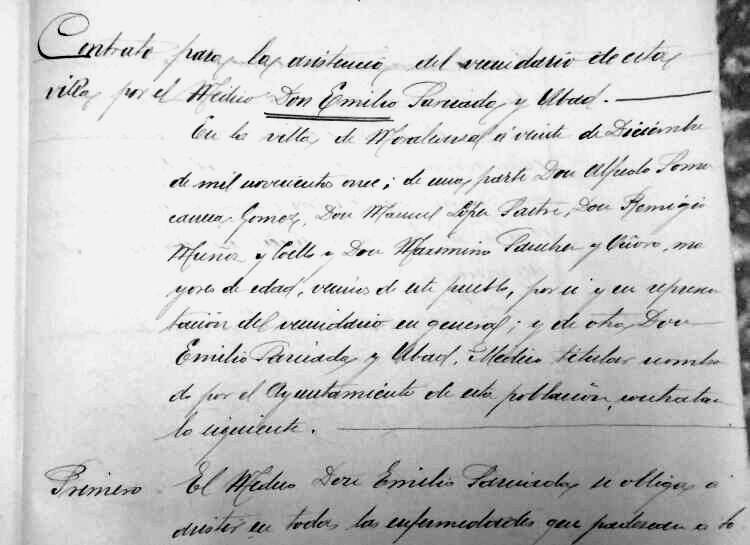 Contrato para la asistencia del vecindario de esta
villa por el Medico Don Emilio Parriada y Abad.
En la villa de Moraleja á veinte de Diciembre
de mil novecientos once; de una parte Don Alfredo Soma
Gomez, Don Manuel López Sastre, Don Remigio
Muñoz y Coello y Don Maximino Sanchez y , ma
yores de edad, vecinos de este pueblo, por si y en represen
tación del vecindario en general; y de otra Don
Emilio Parriada y Abad, Médico titular nombra
do por el Ayuntamiento de esta población, contratan
lo siguiente.
Primero El Medico Don Emilio Parriada se obliga á
asistir en todas las enfermedades que padezcan á lo